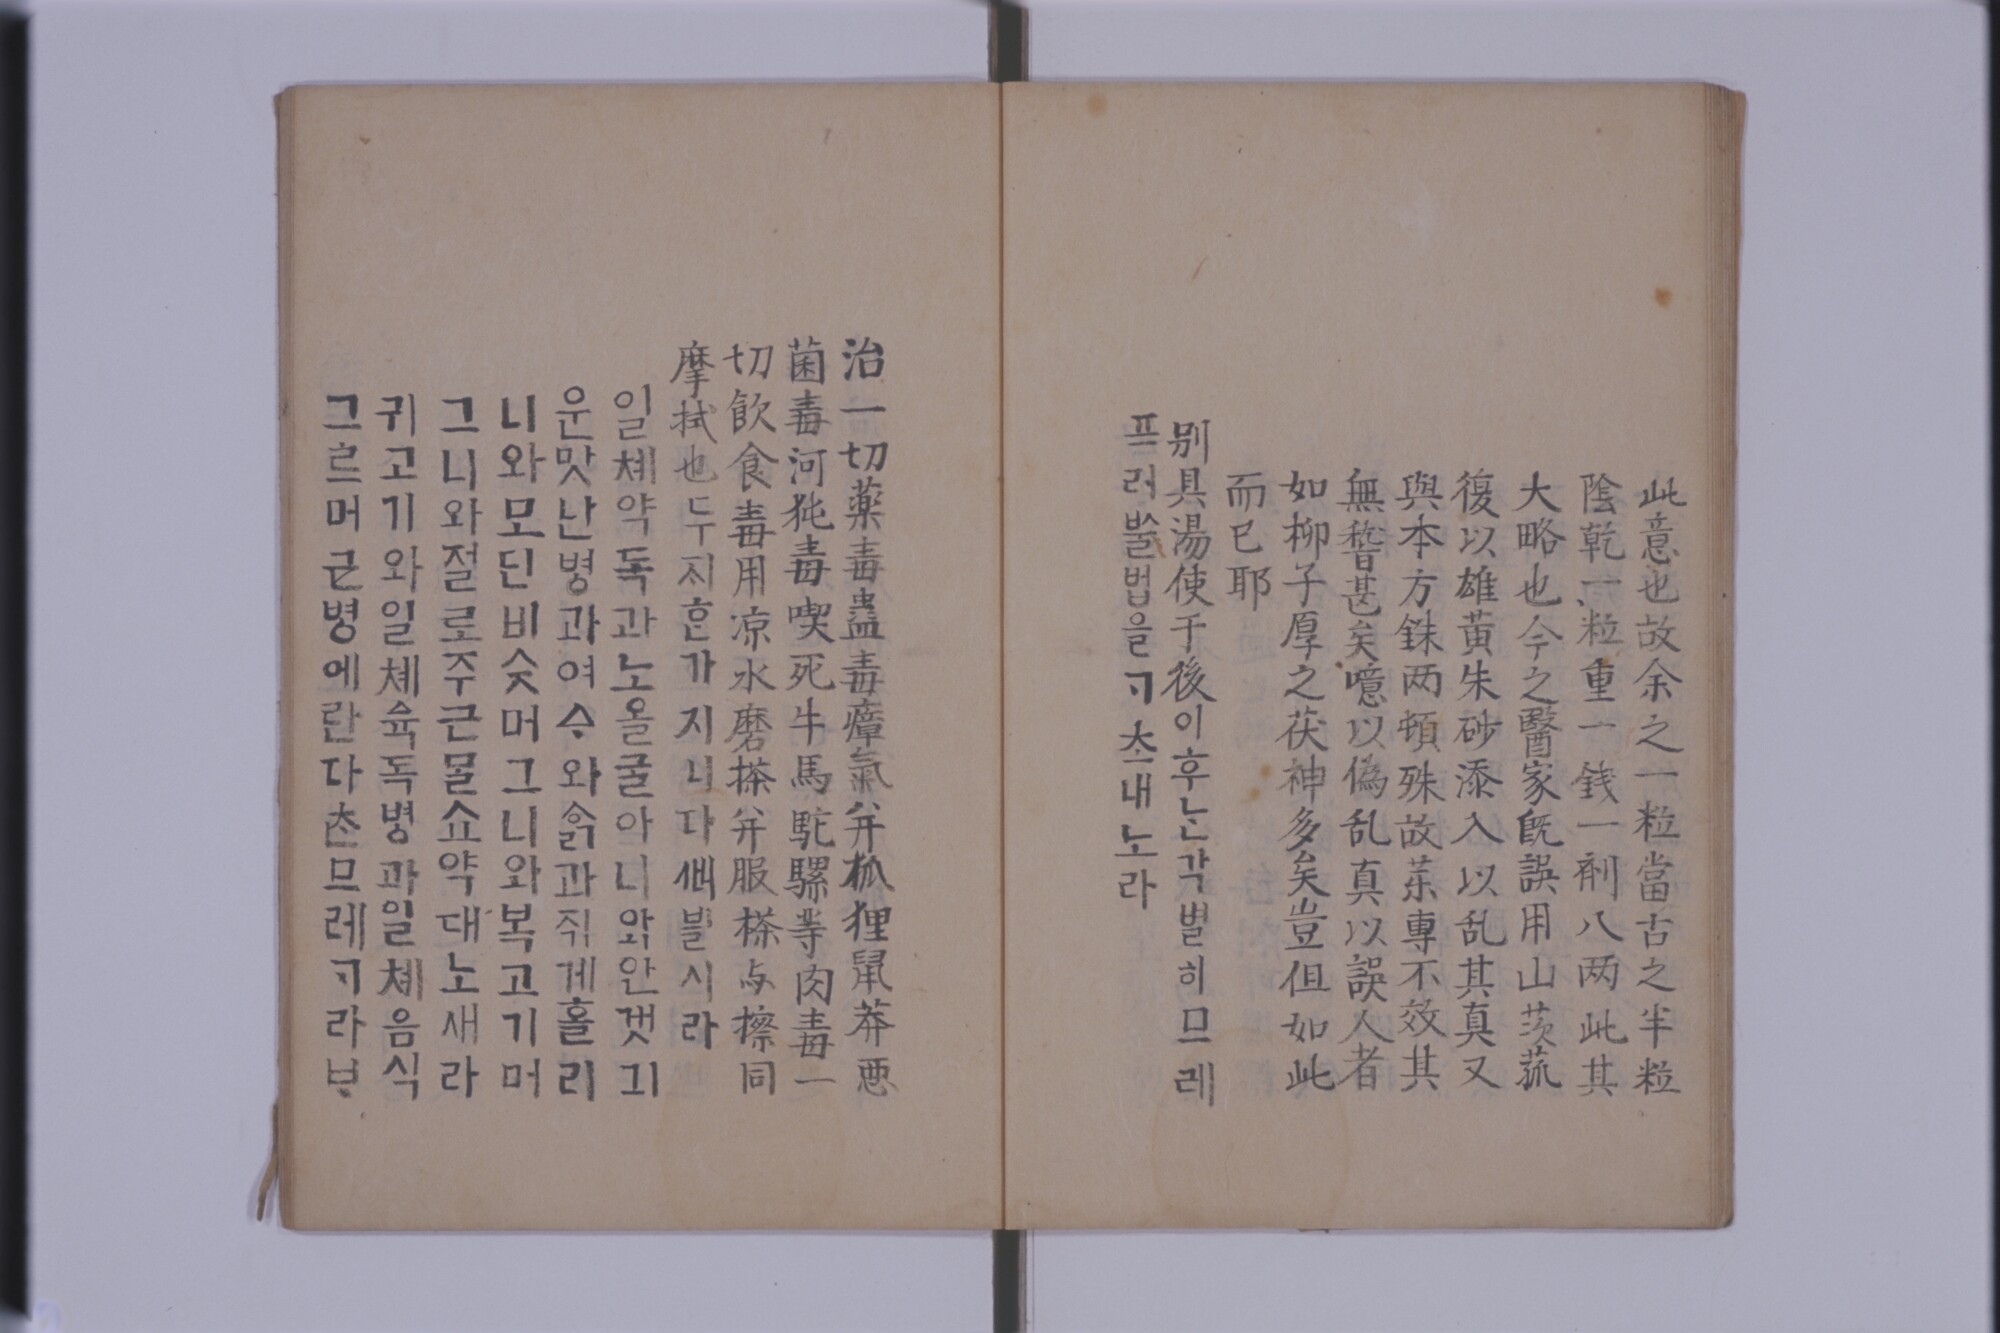 此意也故余之一粒當古之半粒
陰乾一粒重一錢一剤八两此其
大略也今之醫家旣誤用山茨菰
復以雄黃朱砂添入以乱其真又
與本方銖两頓殊故茉專不效其
無稽甚矣噫以僞乱真以誤人者
如柳子厚之茯神多矣豈但如此
而已耶
别具湯使于後이후ᄂᆞᆫ각별히므레
프러ᄡᅳᆯ법을ᄀᆞ초내노라
治一切藥毒蠱毒瘴氣并狐狸鼠莽悪
菌毒河㹠毒喫死牛馬駝騾䒭肉毒一
切飮食毒用凉水磨搽并服搽与擦同
摩拭也두지ᄒᆞᆫ가지니다ᄲᅵ블시라
일쳬약독과노올굴아니왁안갯긔
운맛난병과여ᅀᆞ와ᄉᆞᆰ과쥐게홀리
니와모딘비슷머그니와복고기머
그니와절로주근ᄆᆞᆯ쇼약대노새라
귀고기와일쳬육독병과일쳬음식
그르머근병에란다ᄎᆞᆫ므레ᄀᆞ라ᄇᆞ